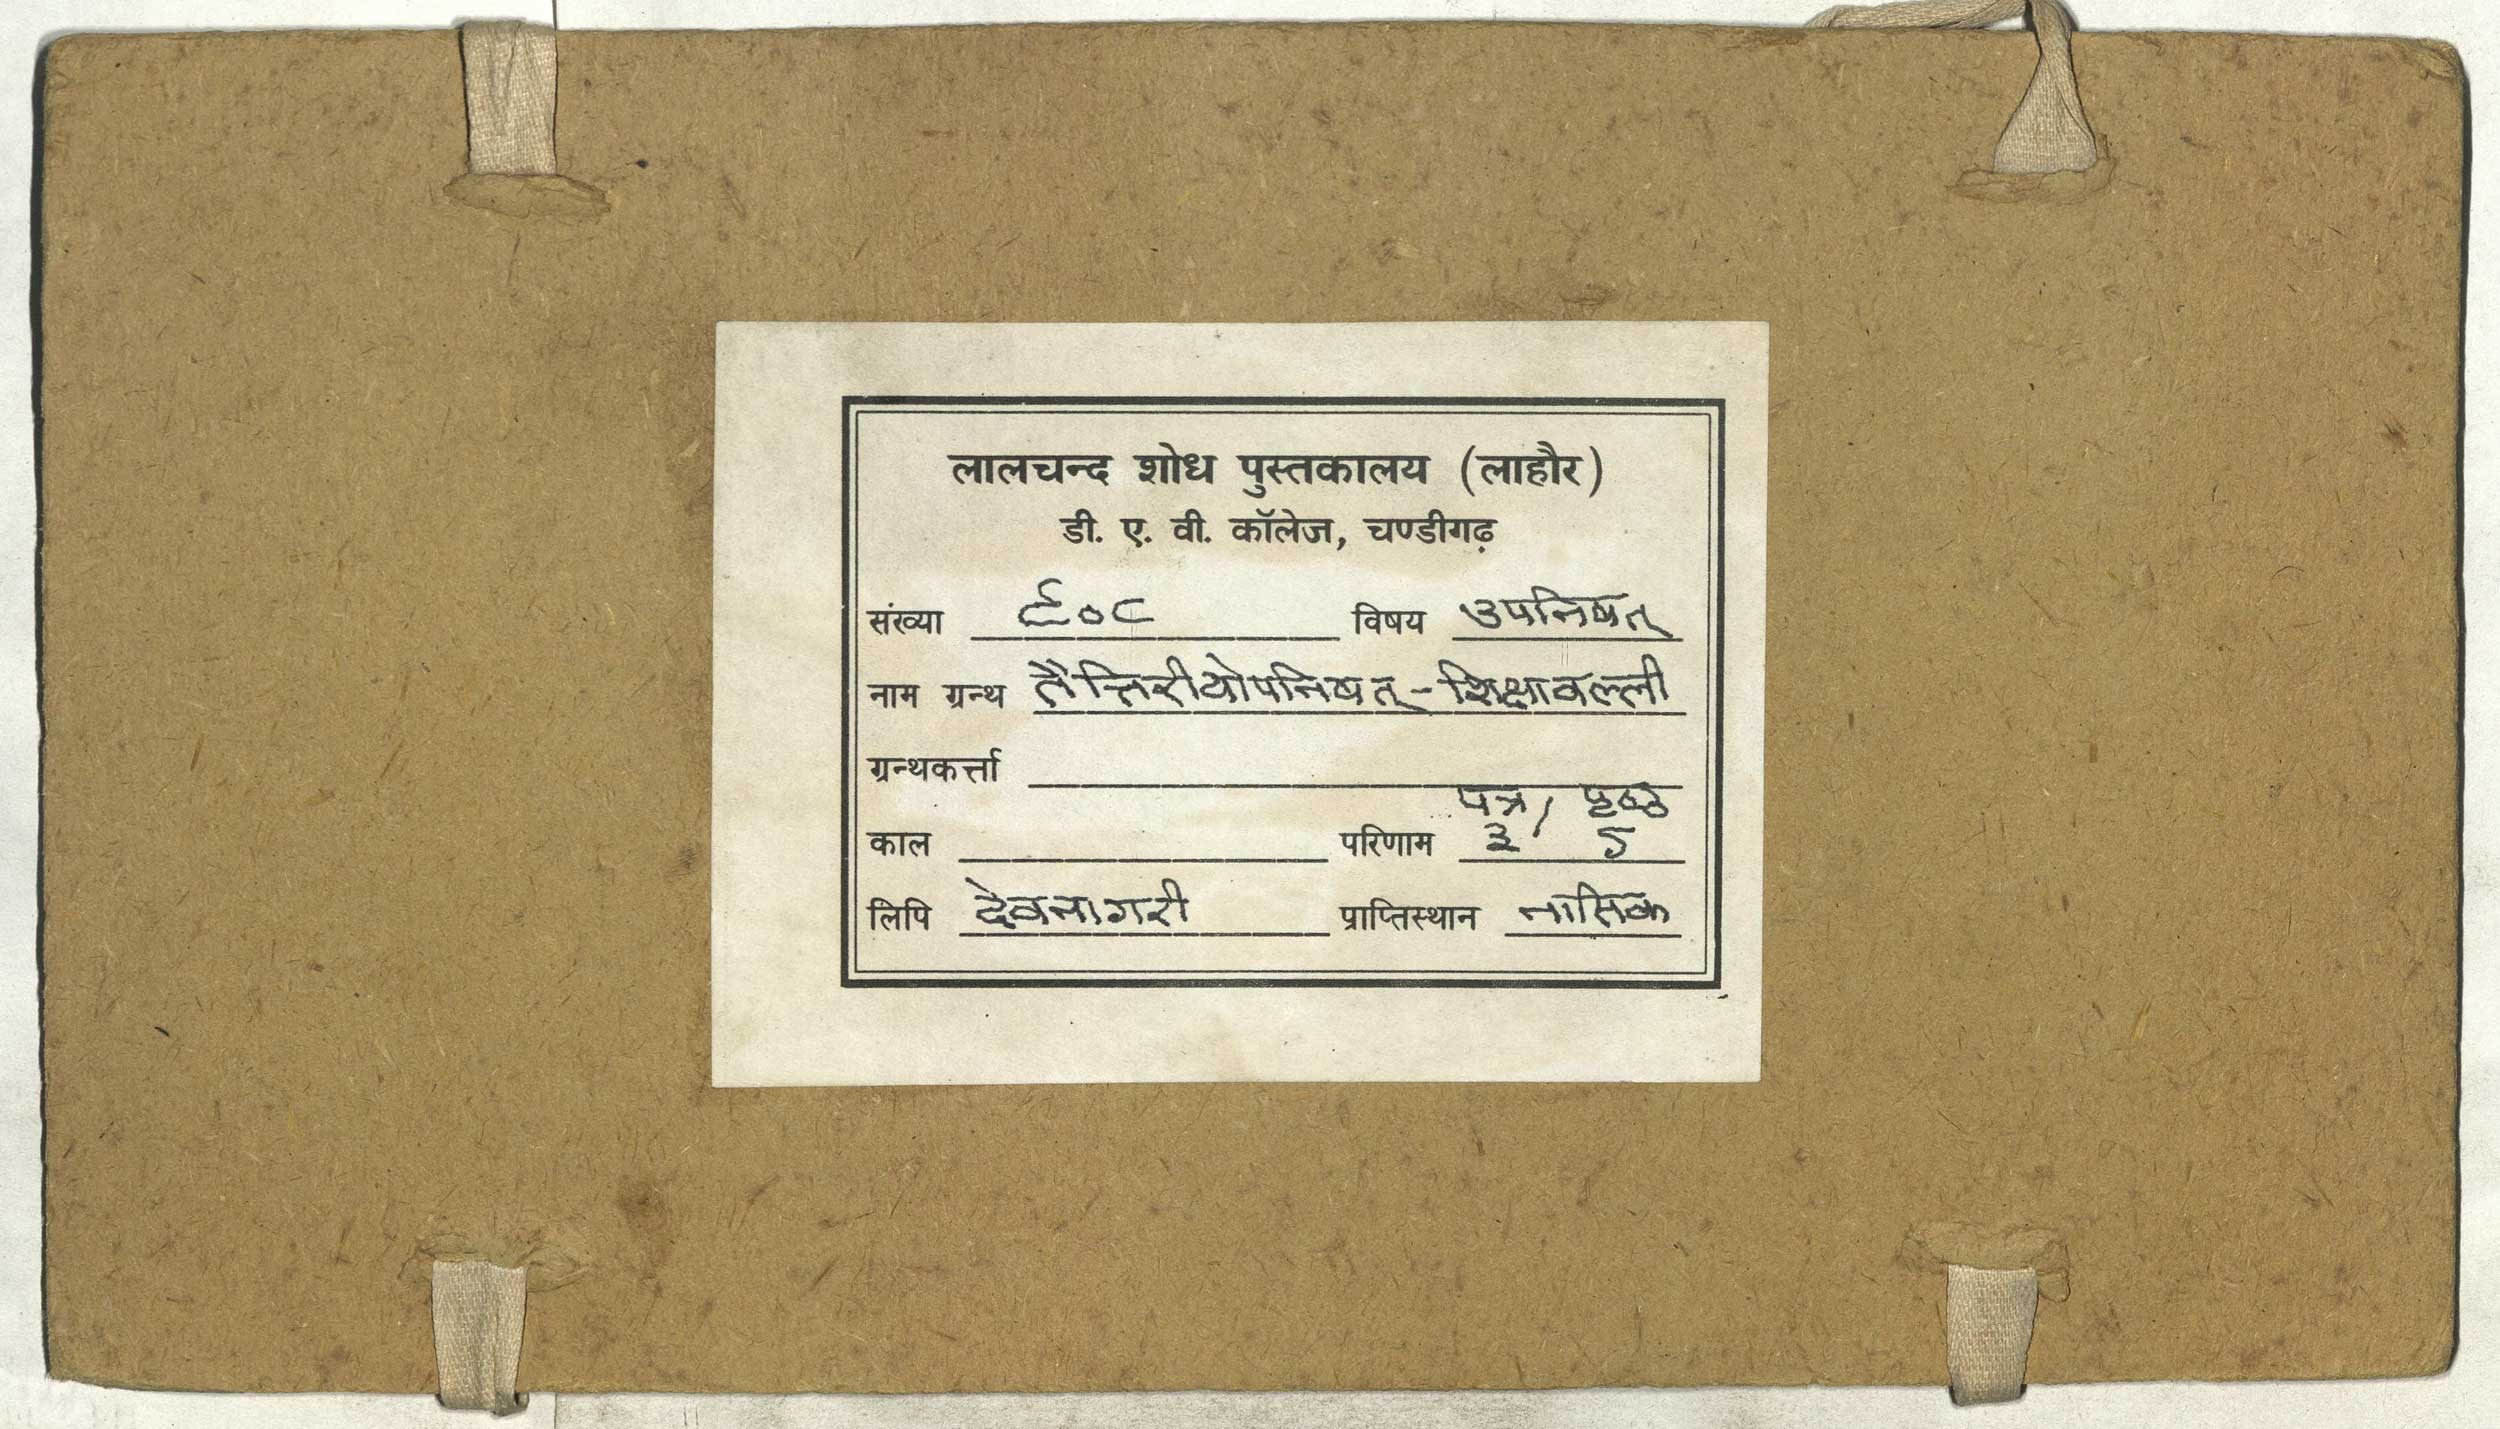 लालचन्द शोध पुस्तकालय (लाहौर)
डी. ए. वी. कॉलेज, चण्डीगढ़
संख्या ९०८ विषय उपनिषत्
नाम ग्रन्थ तैत्तिरीयोपनिषत्-शिक्षावल्ली
ग्रन्थकर्त्ता
पत्र / पृष्ठ
काल परिणाम ३ ५
लिपि देवनागरी प्राप्तिस्थान नासिक